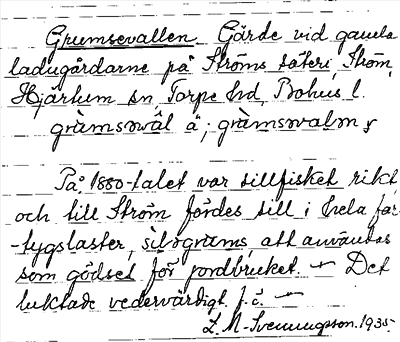 Grumsevallen. Gärde vid gamla
ladugårdarne på Ströms säteri, Ström,
Hjärtum sn, Torpe hd, Bohus l.
gràmsəwàl ä; gràmsəvalən,
På 1880-talet var sillfisket rikt
och till Ström fördes sill i hela far-
-tygslaster, sillgrums, att användas
som gödsel för jordbruket. — Det
luktade vedervärdigt f. ö. —
L. M-Svenungsson. 1935.